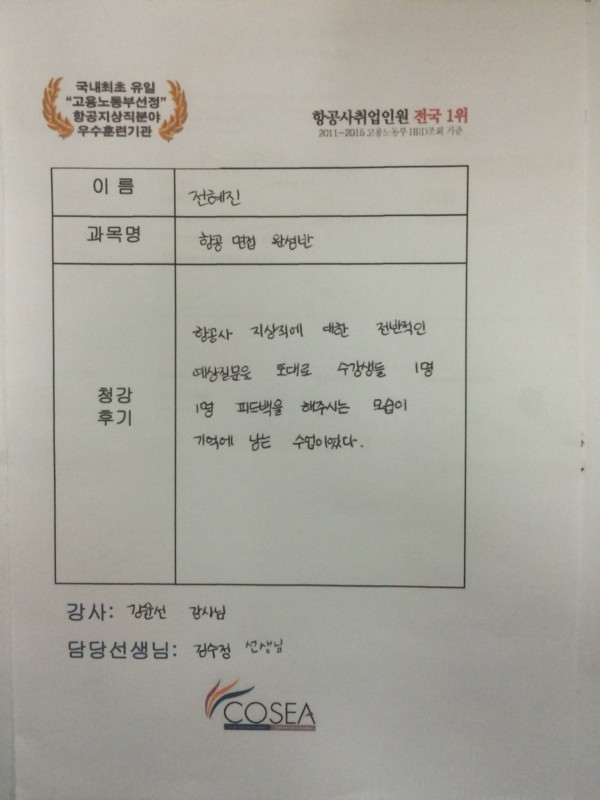 국내최초 유일
“고용노동부선정”
항공지상직분야
우수훈련기관
항공사취업인원 전국 1위
2011-2015 고용노동부 HRD조회 기준
이 름
전혜진
과목명
항공 면접 완성반
청강
후기
항공사 지상직에 대한 전반적인
예상질문을 토대로 수강생들 1명
1명 피드백을 해주시는 모습이
기억에 남는 수업이였다.
강사: 강윤선 강사님
담당선생님: 김수정 선생님
COSEA